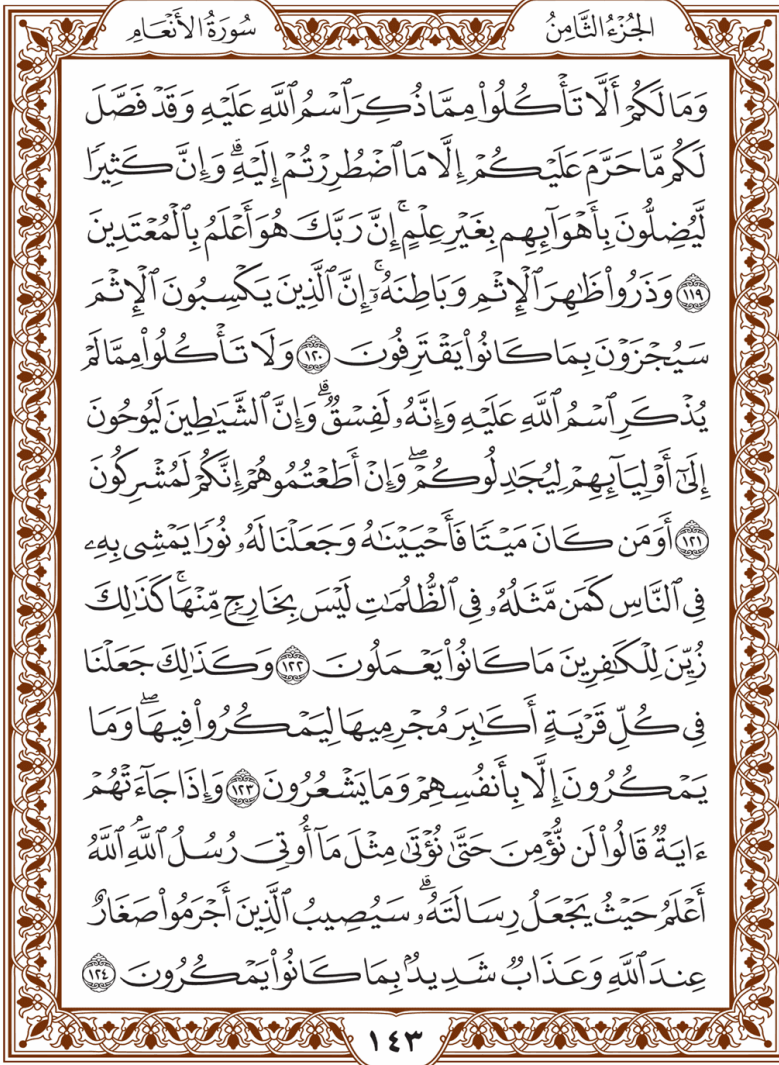 الجُزْءُ الثَّامِنُ
سُورَةُ الأَنْعَامِ
وَمَا لَكُمْ أَلَّا تَأْكُلُوا۟ مِمَّا ذُكِرَ ٱسْمُ ٱللَّهِ عَلَيْهِ وَقَدْ فَصَّلَ
لَكُم مَّا حَرَّمَ عَلَيْكُمْ إِلَّا مَا ٱضْطُرِرْتُمْ إِلَيْهِ ۗ وَإِنَّ كَثِيرًا
لَّيُضِلُّونَ بِأَهْوَآئِهِم بِغَيْرِ عِلْمٍ ۚ إِنَّ رَبَّكَ هُوَ أَعْلَمُ بِٱلْمُعْتَدِينَ
١١٩ وَذَرُوا۟ ظَٰهِرَ ٱلْإِثْمِ وَبَاطِنَهُۥٓ ۚ إِنَّ ٱلَّذِينَ يَكْسِبُونَ ٱلْإِثْمَ
سَيُجْزَوْنَ بِمَا كَانُوا۟ يَقْتَرِفُونَ ١٢٠ وَلَا تَأْكُلُوا۟ مِمَّا لَمْ
يُذْكَرِ ٱسْمُ ٱللَّهِ عَلَيْهِ وَإِنَّهُۥ لَفِسْقٌ ۗ وَإِنَّ ٱلشَّيَٰطِينَ لَيُوحُونَ
إِلَىٰٓ أَوْلِيَآئِهِمْ لِيُجَٰدِلُوكُمْ ۖ وَإِنْ أَطَعْتُمُوهُمْ إِنَّكُمْ لَمُشْرِكُونَ
١٢١ أَوَمَن كَانَ مَيْتًا فَأَحْيَيْنَٰهُ وَجَعَلْنَا لَهُۥ نُورًا يَمْشِى بِهِۦ
فِى ٱلنَّاسِ كَمَن مَّثَلُهُۥ فِى ٱلظُّلُمَٰتِ لَيْسَ بِخَارِجٍ مِّنْهَا ۚ كَذَٰلِكَ
زُيِّنَ لِلْكَٰفِرِينَ مَا كَانُوا۟ يَعْمَلُونَ ١٢٢ وَكَذَٰلِكَ جَعَلْنَا
فِى كُلِّ قَرْيَةٍ أَكَٰبِرَ مُجْرِمِيهَا لِيَمْكُرُوا۟ فِيهَا ۖ وَمَا
يَمْكُرُونَ إِلَّا بِأَنفُسِهِمْ وَمَا يَشْعُرُونَ ١٢٣ وَإِذَا جَآءَتْهُمْ
ءَايَةٌ قَالُوا۟ لَن نُّؤْمِنَ حَتَّىٰ نُؤْتَىٰ مِثْلَ مَآ أُوتِىَ رُسُلُ ٱللَّهِ ۘ ٱللَّهُ
أَعْلَمُ حَيْثُ يَجْعَلُ رِسَالَتَهُۥ ۗ سَيُصِيبُ ٱلَّذِينَ أَجْرَمُوا۟ صَغَارٌ
عِندَ ٱللَّهِ وَعَذَابٌ شَدِيدٌۢ بِمَا كَانُوا۟ يَمْكُرُونَ ١٢٤
١٤٣